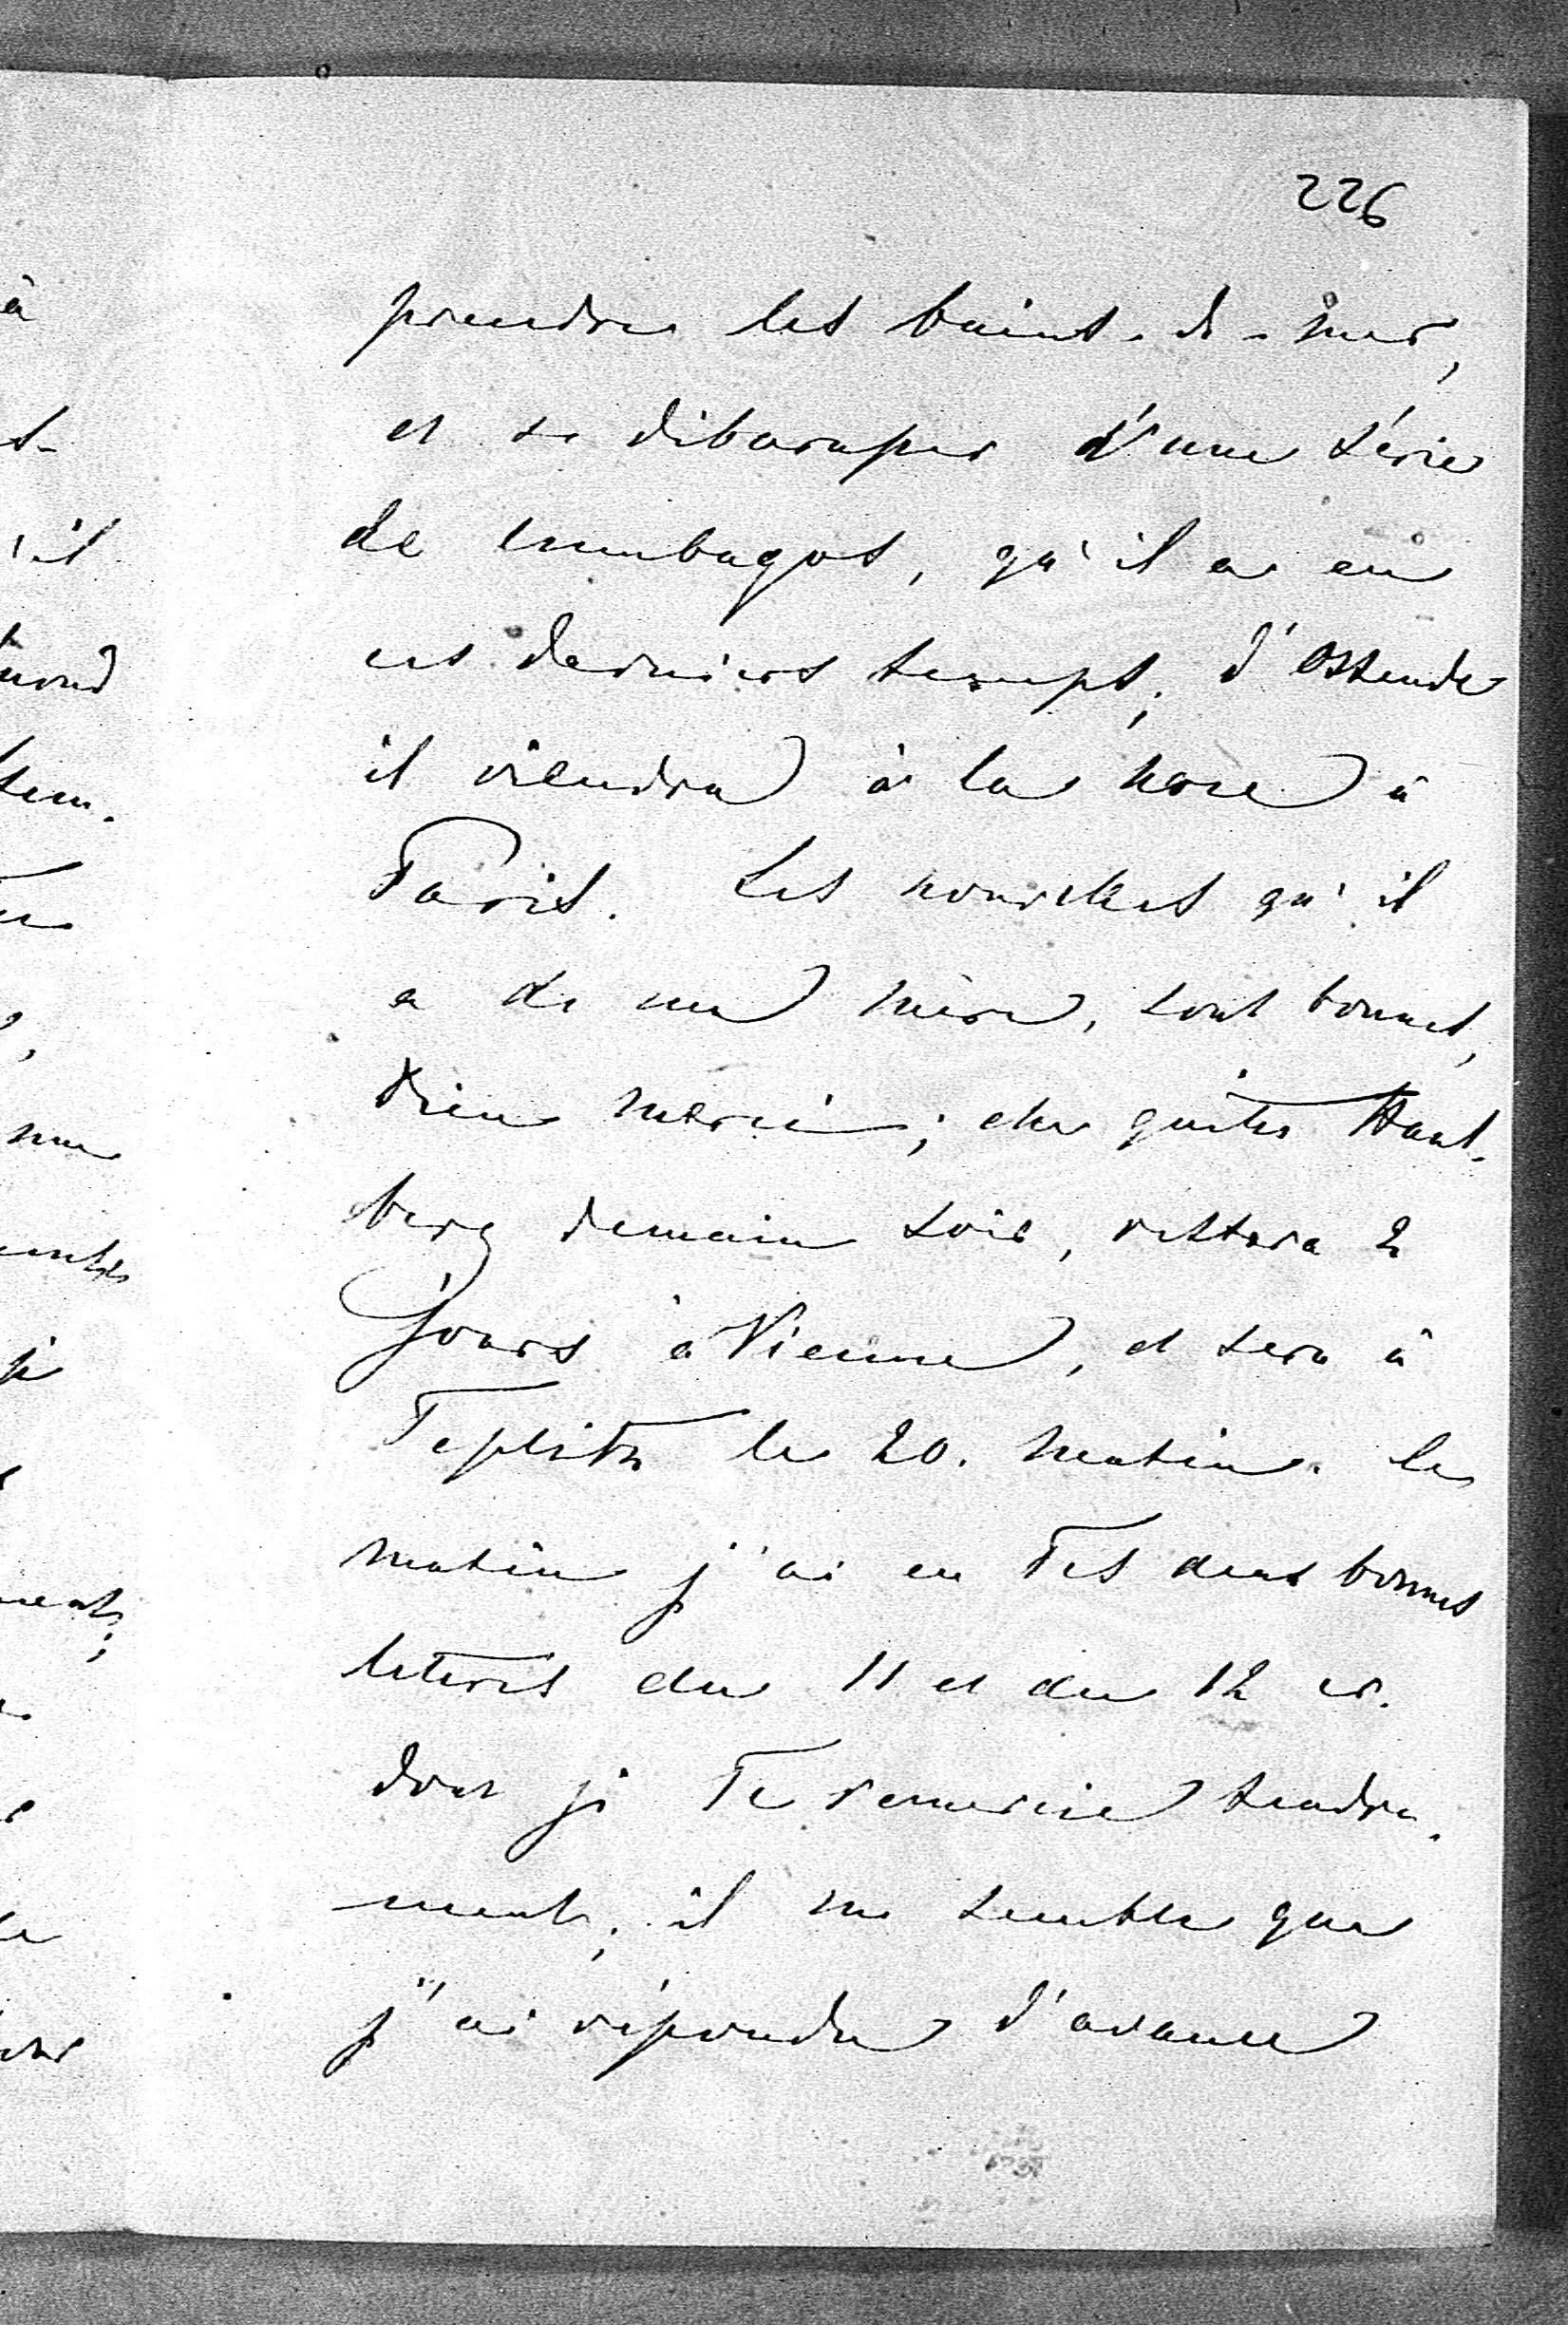 226
prendre les bains-de-mer,
et se débarasser d'une série
de lumbagos, qu'il a eu
ces derniers temps; d'Ostende
il viendra à la noce à
Paris. Les nouvelles qu'il
a de ma mère, sont bonnes,
Dieu merci; elle quitte
berg demain soir, restera 2
Jours à Vienne, et sera à
Teplitz le 20. matin. Ce
matin j'ai eu Tes deux bonnes
lettres du 11 et du 12 cr.
dont je Te remercie tendre-
ment; il me semble que
j'ai répondu d'avance